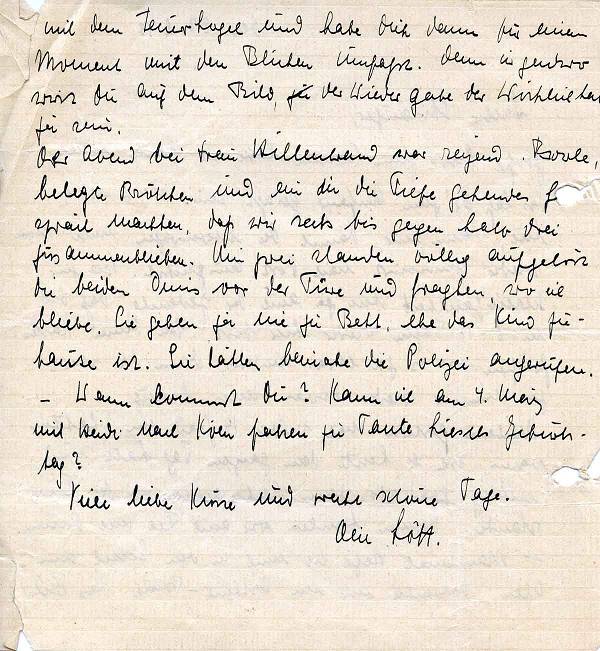 mit dem Feuerkogel und habe Dich dann für einen
Moment mit den Blicken umfasst. Denn irgendwo
wirst Du auf dem Bild, der Wiedergabe der Wirklichkeit
ja sein.
Der Abend bei Frau Hillenbrand war reizend. Bowle,
belegte Brötchen und ein in die Tiefe gehendes Ge
spräch machten, daß wir sechs bis gegen halb drei
zusammenblieben. Um zwei standen völlig aufgelöst
die beiden Omis vor der Türe und fragten, wo ich
bliebe. Sie gehen ja nie zu Bett, ehe das Kind zu-
hause ist. Sie hätten beinahe die Polizei angerufen.
– Wann kommst Du? Kann ich am 4. März
mit Heidi nach Köln fahren zu Tante Liesels Geburts-
tag?
Viele liebe Küsse und recht schöne Tage.
Dein Lött.